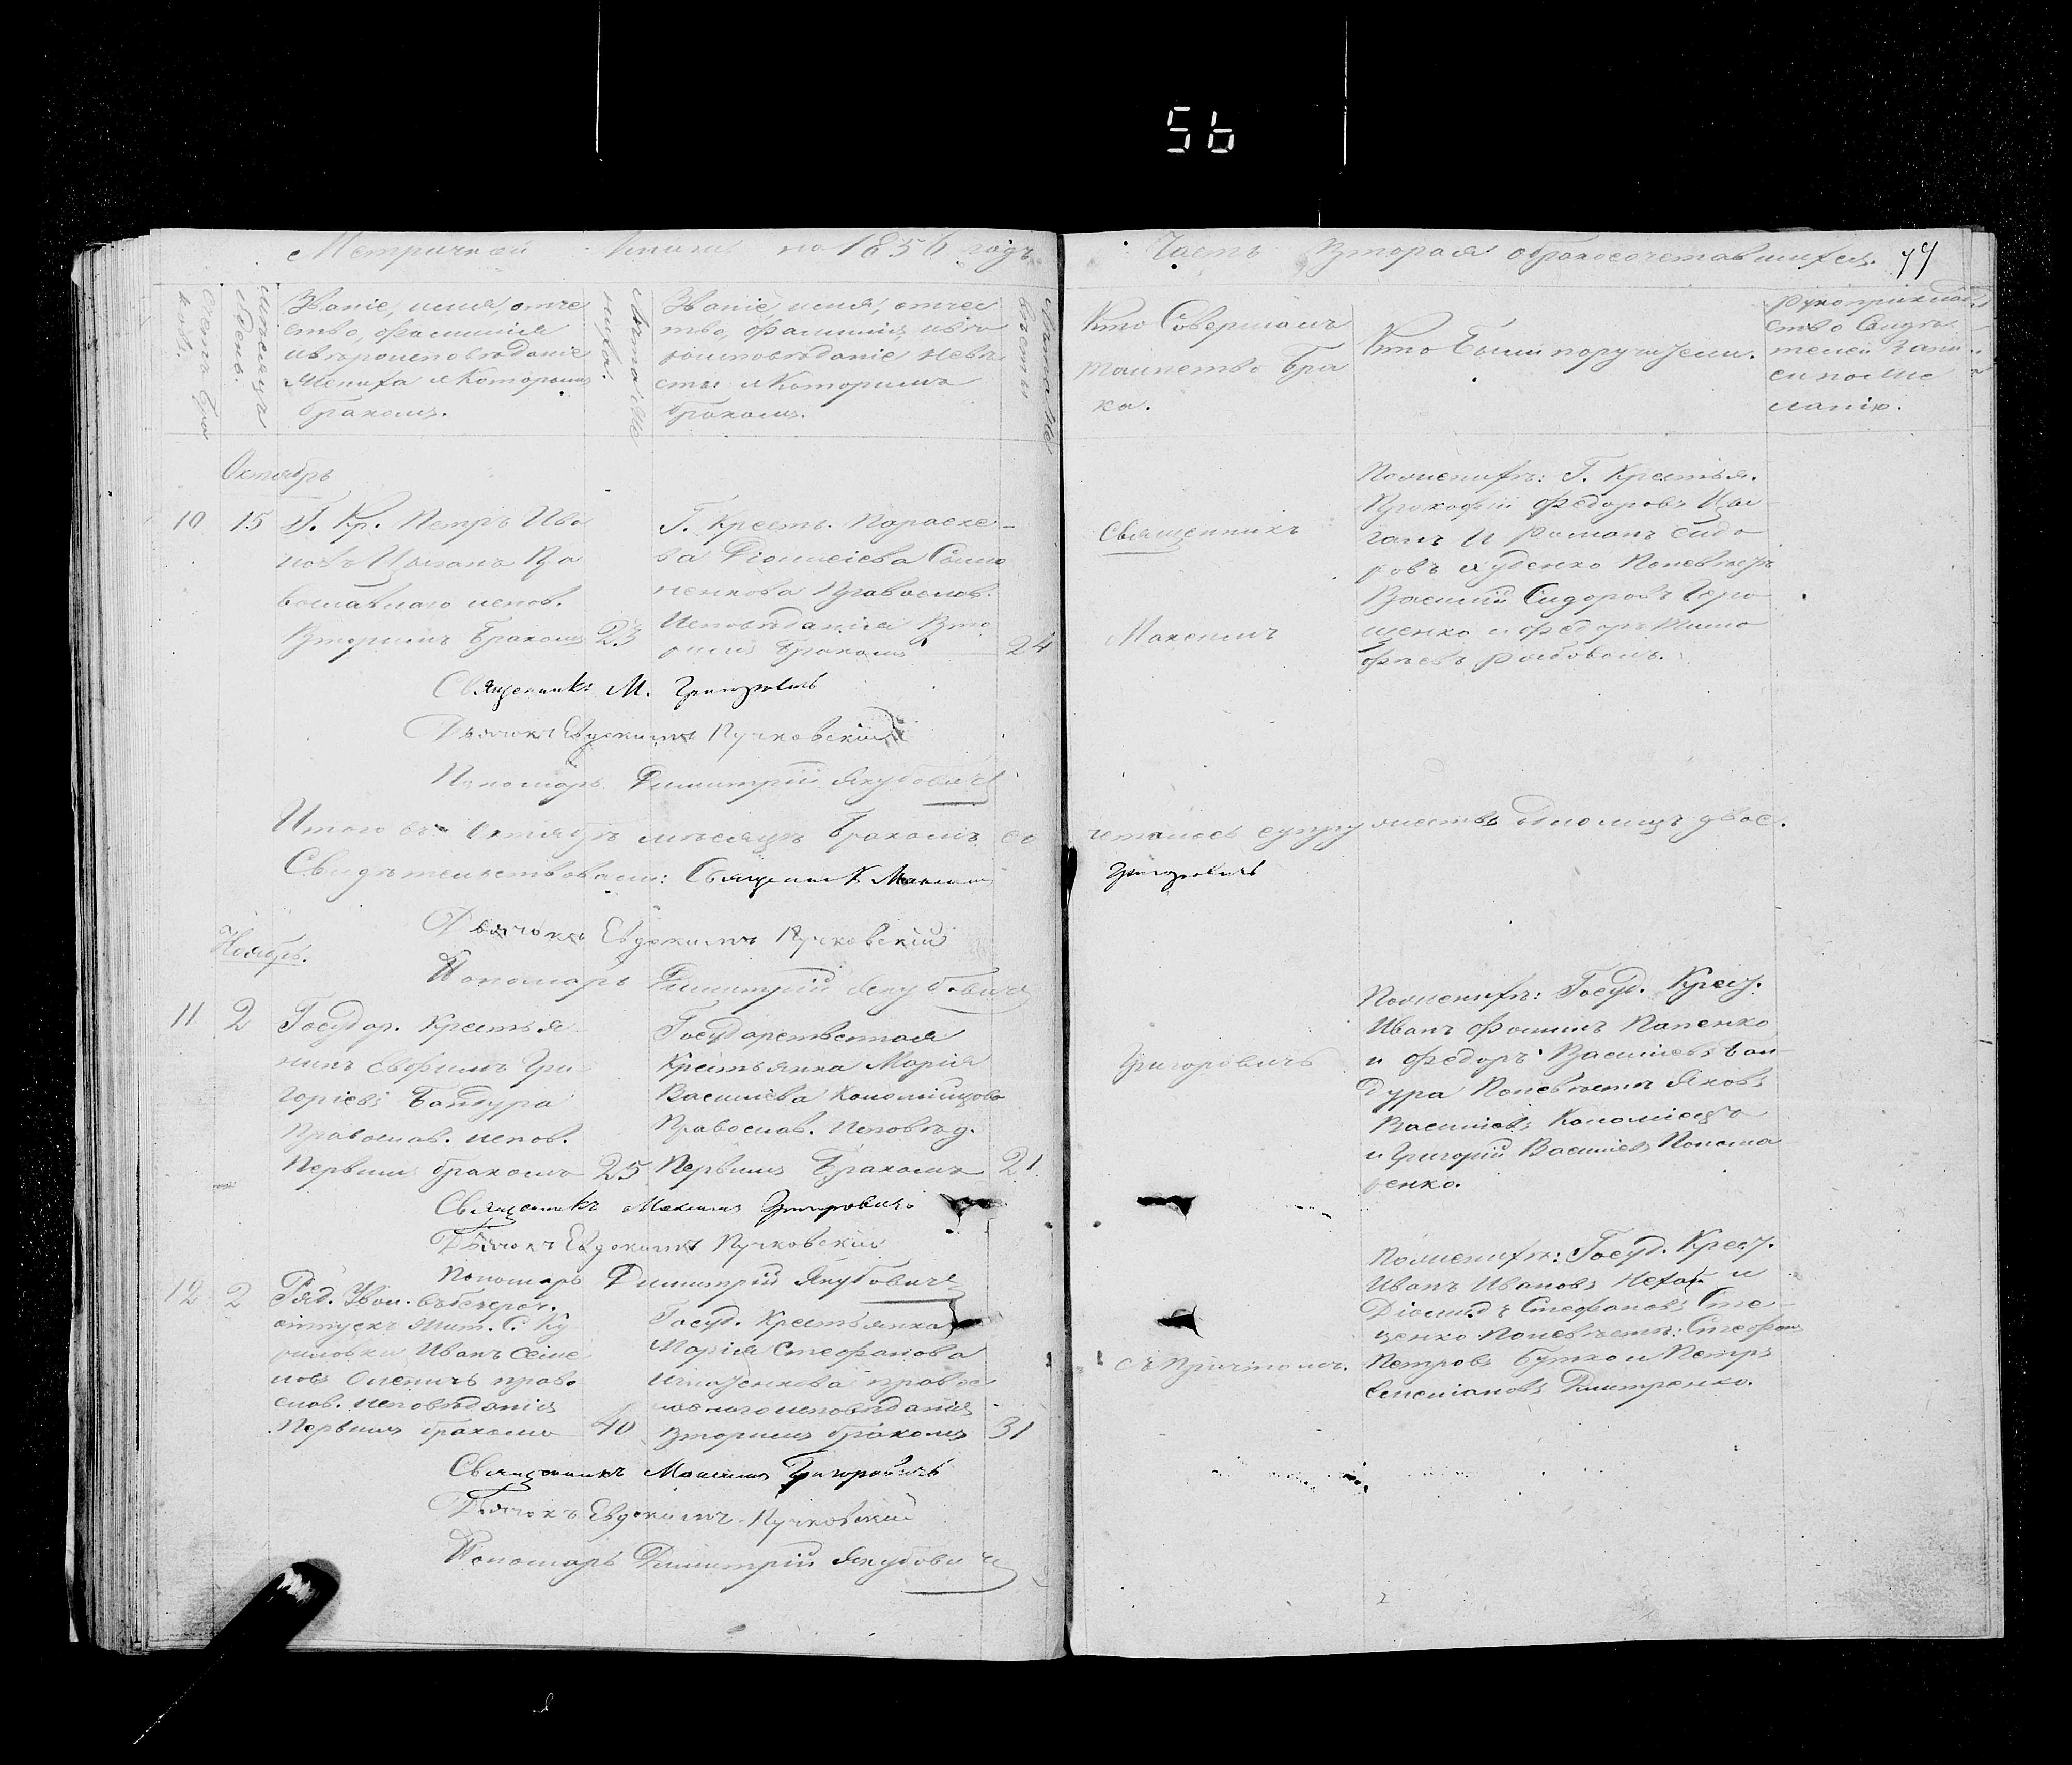 56
Метричной книги на 1856 годъ
Часть Вторая о бракосочетавшихся. 79
Счетъ браковъ.
Мѣсяцъ и день.
Званіе, имя, отче
ство, фамилія
и вѣроисповѣданіе
жениха и которымъ
бракомъ.
Лѣта жениха.
Званіе, имя, отчес
тво, фамилія и вѣро
исповѣданіе невѣ
сты и которымъ
бракомъ.
Лѣта невѣсты
Кто Совершалъ
таинство бра
ка.
Кто были поручители.
Рукоприклад
ство Свидѣ
телей записи по же
ланію.
Октябрь
10 15 Г. Кр. Петръ Ива
новъ Цыганъ Пра
вославнаго испов.
Вторымъ бракомъ 23
Г. Крест. Параске-
ва Діонисіева Симо
ненкова Православ.
Исповѣданія Вто
рымъ бракомъ 24
Священникъ
Максимъ
По женихѣ: Г. Крестья.
Прокофій Федоровъ Цы
ганъ и Романъ Сидо
ровъ Худенко По невѣстѣ
Василій Сидоровъ
щенко и Федоръ Тимо
фѣевъ
Священникъ М. Григоровичъ
Дьячокъ Евдокимъ Пучковскій
Пономарь Димитрій Якубовичъ
Итого въ Октябрѣ мѣсяцѣ бракомъ со
четалось супружествъ обоего лицъ двое.
Свидѣтельствовали: Священник Максим
Григоровичъ
Дьячокъ Евдокимъ Пучковскій
Пономарь Димитрій Якубовичъ
Ноябрь.
11 2 Государ. Крестья
нинъ Евфимъ Гри
горіевъ Бандура
Православ. испов.
Первымъ бракомъ 25
Государственная
Крестьянка Марія
Василіева Коломійцова
Православ. Исповѣд.
Первымъ бракомъ 21
Григоровичъ
По женихѣ: Госуд. Крест.
Иванъ Фоминъ Папенко
и Федоръ Василіевъ Бан
дура По невѣстѣ Яковъ
Василіевъ Коломіецъ
и Григорій Василіевъ Понома
ренко.
Священникъ Максимъ Григоровичъ
Дьячокъ Евдокимъ Пучковскій
Пономарь Димитрій Якубовичъ
12 2 Ряд. Увол. въ безсроч.
отпускъ жит. С. Ку
риловки Иванъ Семе
новъ Оленичъ право
слав. исповѣданія
Первымъ бракомъ 40
Госуд. Крестьянка
Марія Стефанова
Игнатенкова правос
лавнаго исповѣданія
Вторымъ бракомъ 31
съ Причтомъ.
По женихѣ: Госуд. Крест.
Иванъ Ивановъ Нехай и
Діомидъ Стефановъ Сте-
ценко По невѣстѣ: Стефанъ
Петровъ Бутко и Петръ
Емеліановъ Дмитренко.
Священникъ Максимъ Григоровичъ
Дьячокъ Евдокимъ Пучковскій
Пономарь Димитрій Якубовичъ